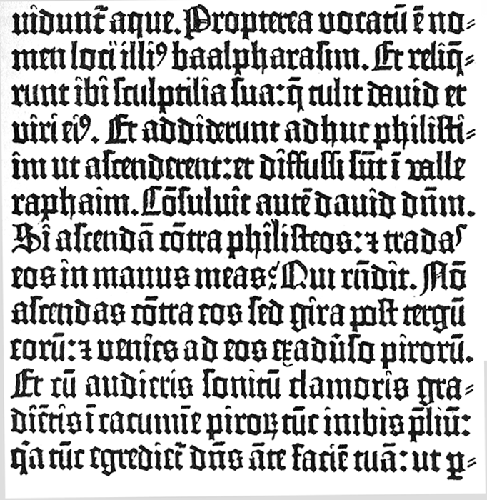 uidunt᷒ aque. Propterea vocatū ē no⸗
men loci illiꝰ baalpharasim. Et reliq̄⸗
runt ibi sculptilia sua: q̄ tulit dauid et
viri eiꝰ. Et addiderunt adhuc philisti⸗
im ut ascenderent: et diffusi sūt ī valle
raphaim. Cōsuluit autē dauid dn̄m.
Si ascendā cōtra philisteos: ⁊ tradas
eos in manus meas? Qui rn̄dit. Nō
ascendas cōtra eos sed gira post tergū
eorū: ⁊ venies ad eos exaduṡo pirorū.
Et cū audieris sonitū clamoris gra⸗
diētis ī cacumīe piroꝝ tūc inibis p̄liū:
q̇a tūc egrediet᷒ dn̄s āte faciē tuā: ut ꝑ⸗